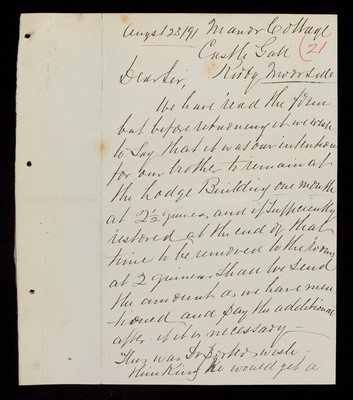 Augst 23/91 Manor Cottage
Castle Gate
21
Kirby Moorside
Dear Sir,
We have read the form
but before returning it we wish
to Say that it was our intention
for our brother to remain at
the Lodge Building one month
at 2½ guineas, and if Sufficiently
restored at the end of that
time to be removed to the
at 2 guineas. Shall we Send
the amount as we have men
tioned and pay the additional
after if it is necessary —
This was Dr wish
thinking he would get a